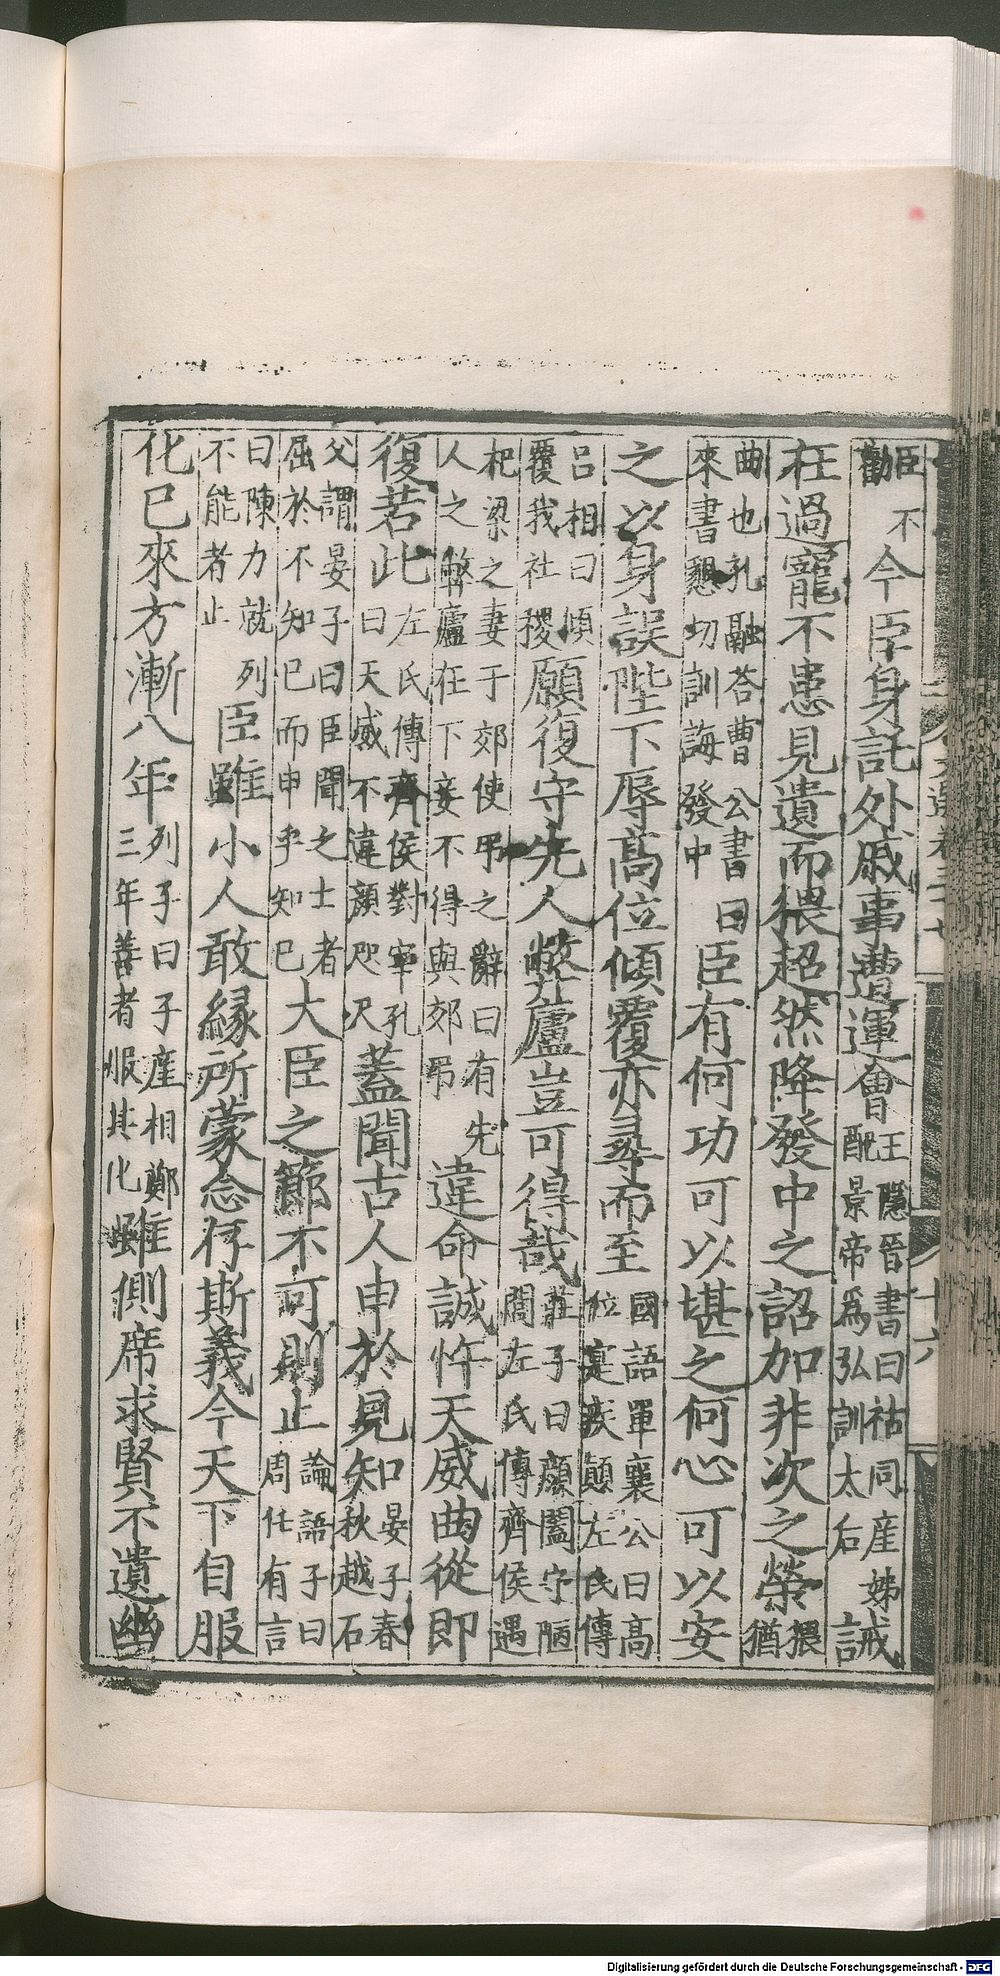 臣不勸今臣身託外戚事遭運會王隱晉書曰祜同產姊配景帝爲弘訓太后誡
在過寵不患見遺而猥超然降發中之詔加非次之榮猥猶
曲也孔融荅曹公書曰來書懇切訓誨發中臣有何功可以堪之何心可以安
之以身誤陛下辱高位傾覆亦尋而至國語單襄公曰高位寔疾顛左氏傳
呂相曰傾覆我社稷願復守先人弊廬豈可得哉莊子曰顏闔守陋閭左氏傳齊侯遇
杞梁之妻于郊使弔之辭曰有先人之弊廬在下妾不得與郊弔違命誠忤天威曲從即
復若此左氏傳齊侯對宰孔曰天威不違顏咫尺蓋聞古人申於見知晏子春秋越石
父謂晏子曰臣聞之士者屈於不知巳而申乎知巳大臣之節不可則止論語子曰周任有言
曰陳力就列不能者止臣雖小人敢緣所蒙念存斯義今天下自服
化巳來方漸八年列子曰子產相鄭三年善者服其化雖側席求賢不遺幽
Digitalisierung gefördert durch die Deutsche Forschungsgemeinschaft - DFG